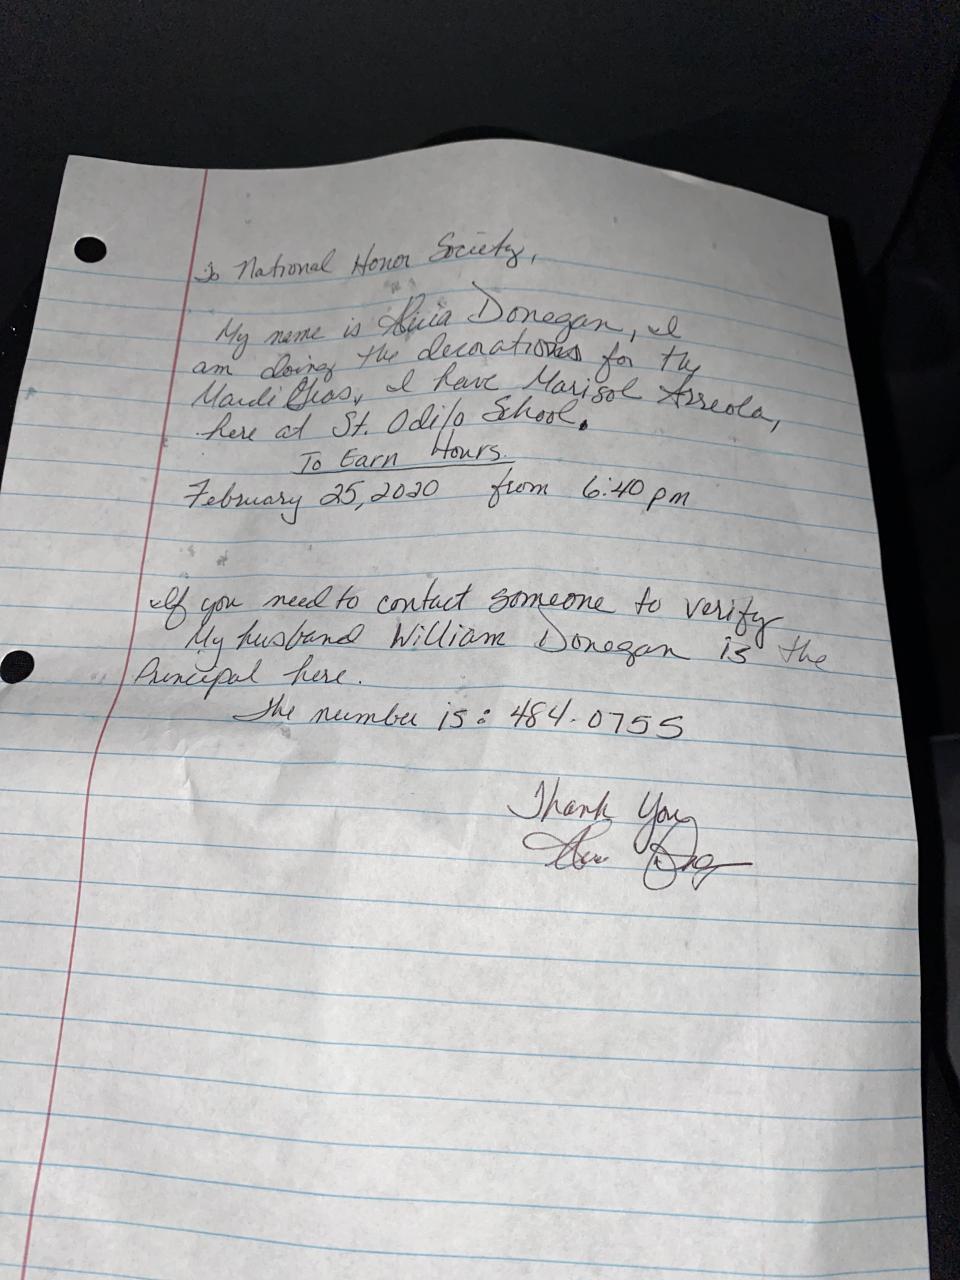 To National Honor Society,
My name is Alicia Donegan, I
am doing the decorations for the
Mardi Gras, I have Marisol Arreola,
here at St. Odilo School.
To Earn Hours.
February 25, 2020 from 6:40 pm
If you need to contact someone to verify
My husband William Donegan is the
Principal here.
The number is: 484-0755
Thank You